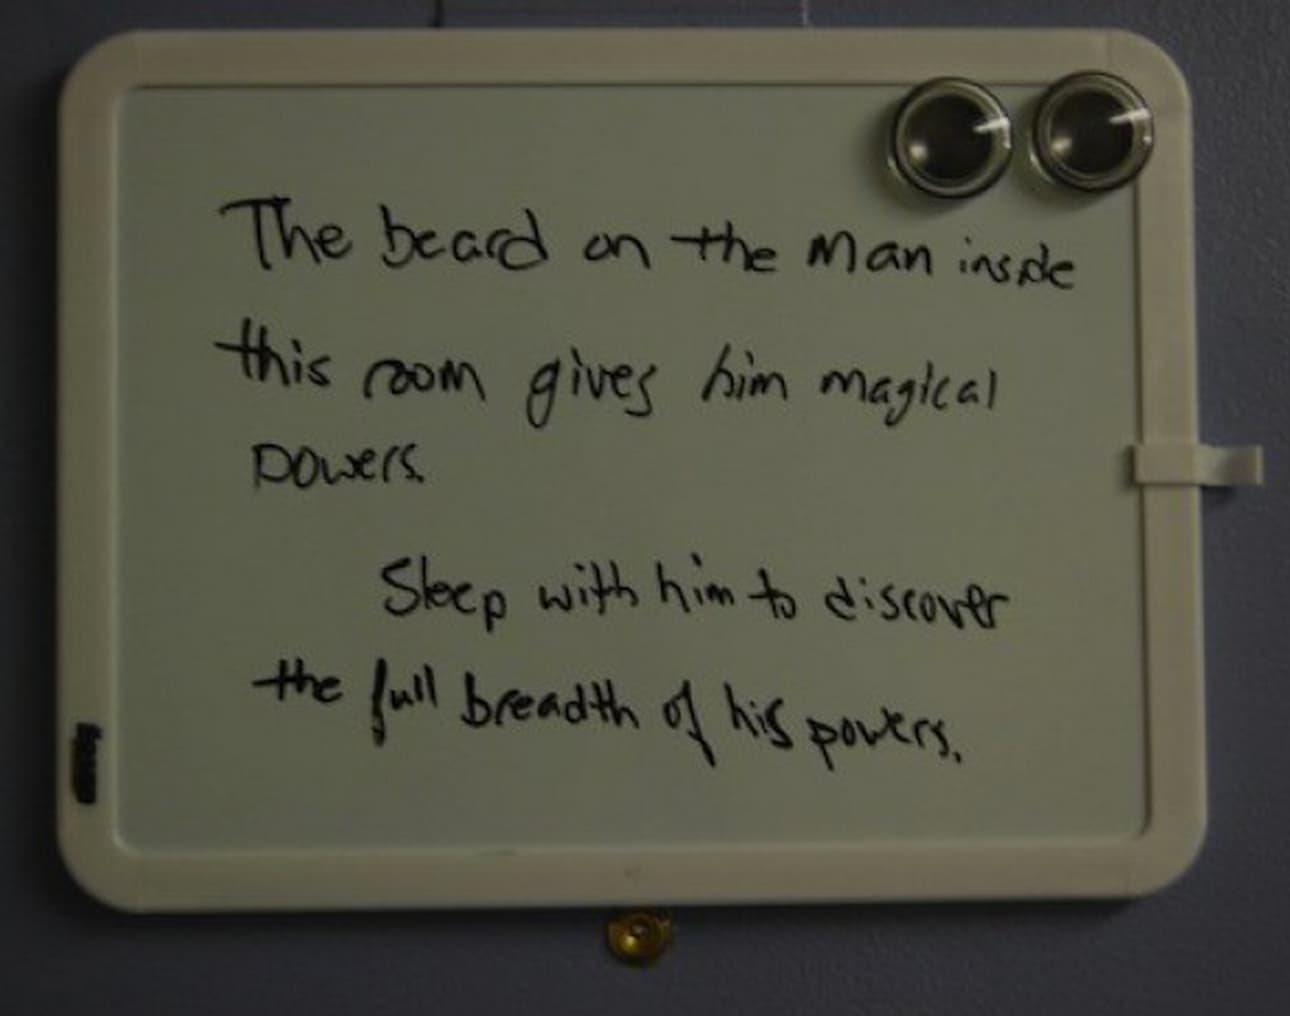 The beard on the man inside
this room gives him magical
powers.
Sleep with him to discover
the full breadth of his powers.